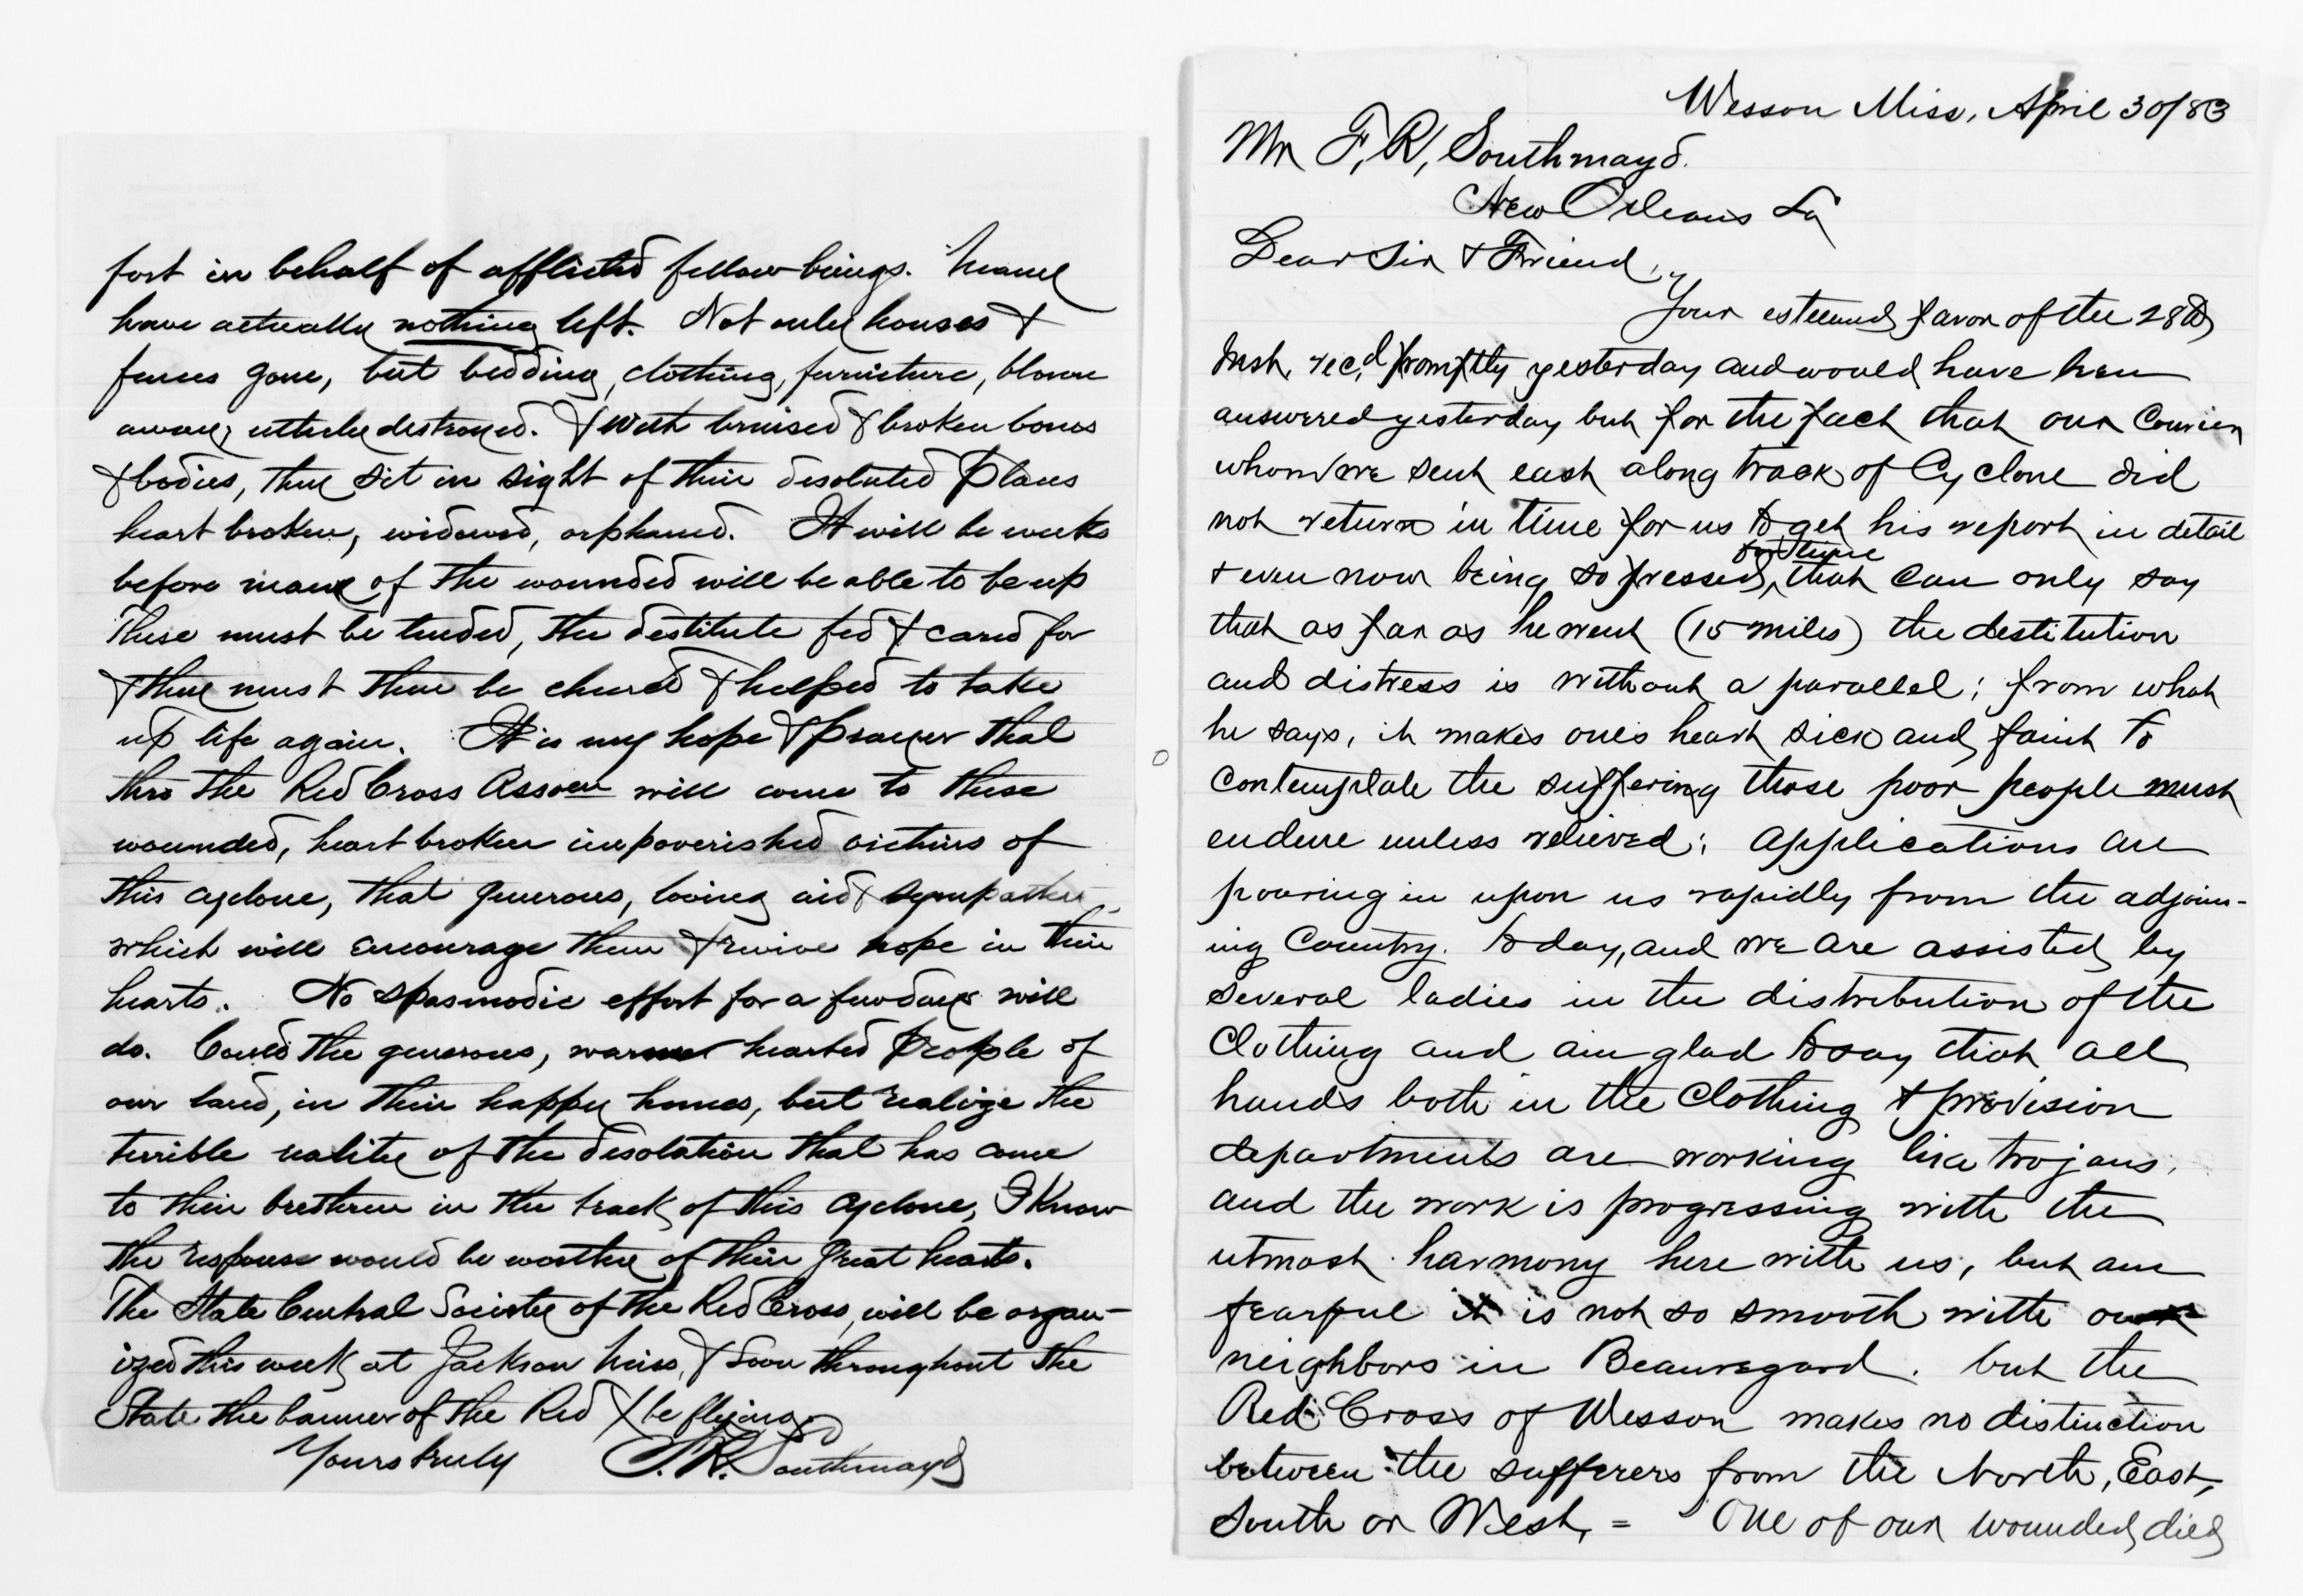 fort in behalf of afflicted fellow-beings. Many
have actually nothing left. Not only houses &
fences gone, but bedding, clothing, furniture, blown
away, utterly destroyed. & with bruised & broken bones
& bodies, they sit in sight of their desolated places
heart broken, widowed, orphaned. It will be weeks
before many of the wounded will be able to be up
These must be tended, the destitute fed & cared for
& they must then be cheered & helped to take
up life again. It is my hope & prayer that
thro the Red Cross Assocn will come to these
wounded, heart broken impoverished victims of
this cyclone, that generous, loving aid & sympathy
which will encourage them & revive hope in their
hearts. No spasmodic effort for a few days will
do. Could the generous, warm hearted people of
our land, in their happy homes, but realize the
terrible reality of the desolation that has come
to their brethren in the track of this cyclone, I know
the response would be worthy of their great hearts.
The State Central Society of the Red Cross, will be organ-
ized this week at Jackson Miss, & soon throughout the
State the banner of the Red X be flying.
Yours truly F. R. Southmayd
Wesson Miss, April 30/83
Mr F, R, Southmayd.
New Orleans La
Dear Sir & Friend,,
Your esteemed favor of the 28th
Inst, rec,d promptly yesterday and would have been
answered yesterday but for the fact that our Courier
whom we sent east along track of Cyclone did
not return in time for us to get his report in detail
for time
& even now being so pressed, that can only say
that as far as he went (15 miles) the destitution
and distress is without a parallel; from what
he says, it makes ones heart sick and faint to
contemplate the suffering those poor people must
endure unless relieved; applications are
pouring in upon us rapidly from the adjoin-
ing Country. to day, and we are assisted by
several ladies in the distribution of the
Clothing and am glad to say that all
hands both in the Clothing & provision
departments are working like trojans,
and the work is progressing with the
utmost harmony here with us, but am
fearful it is not so smooth with our
neighbors in Beauregard. but the
Red Cross of Wesson makes no distinction
between the sufferers from the North, East,
South or West, = One of our wounded died